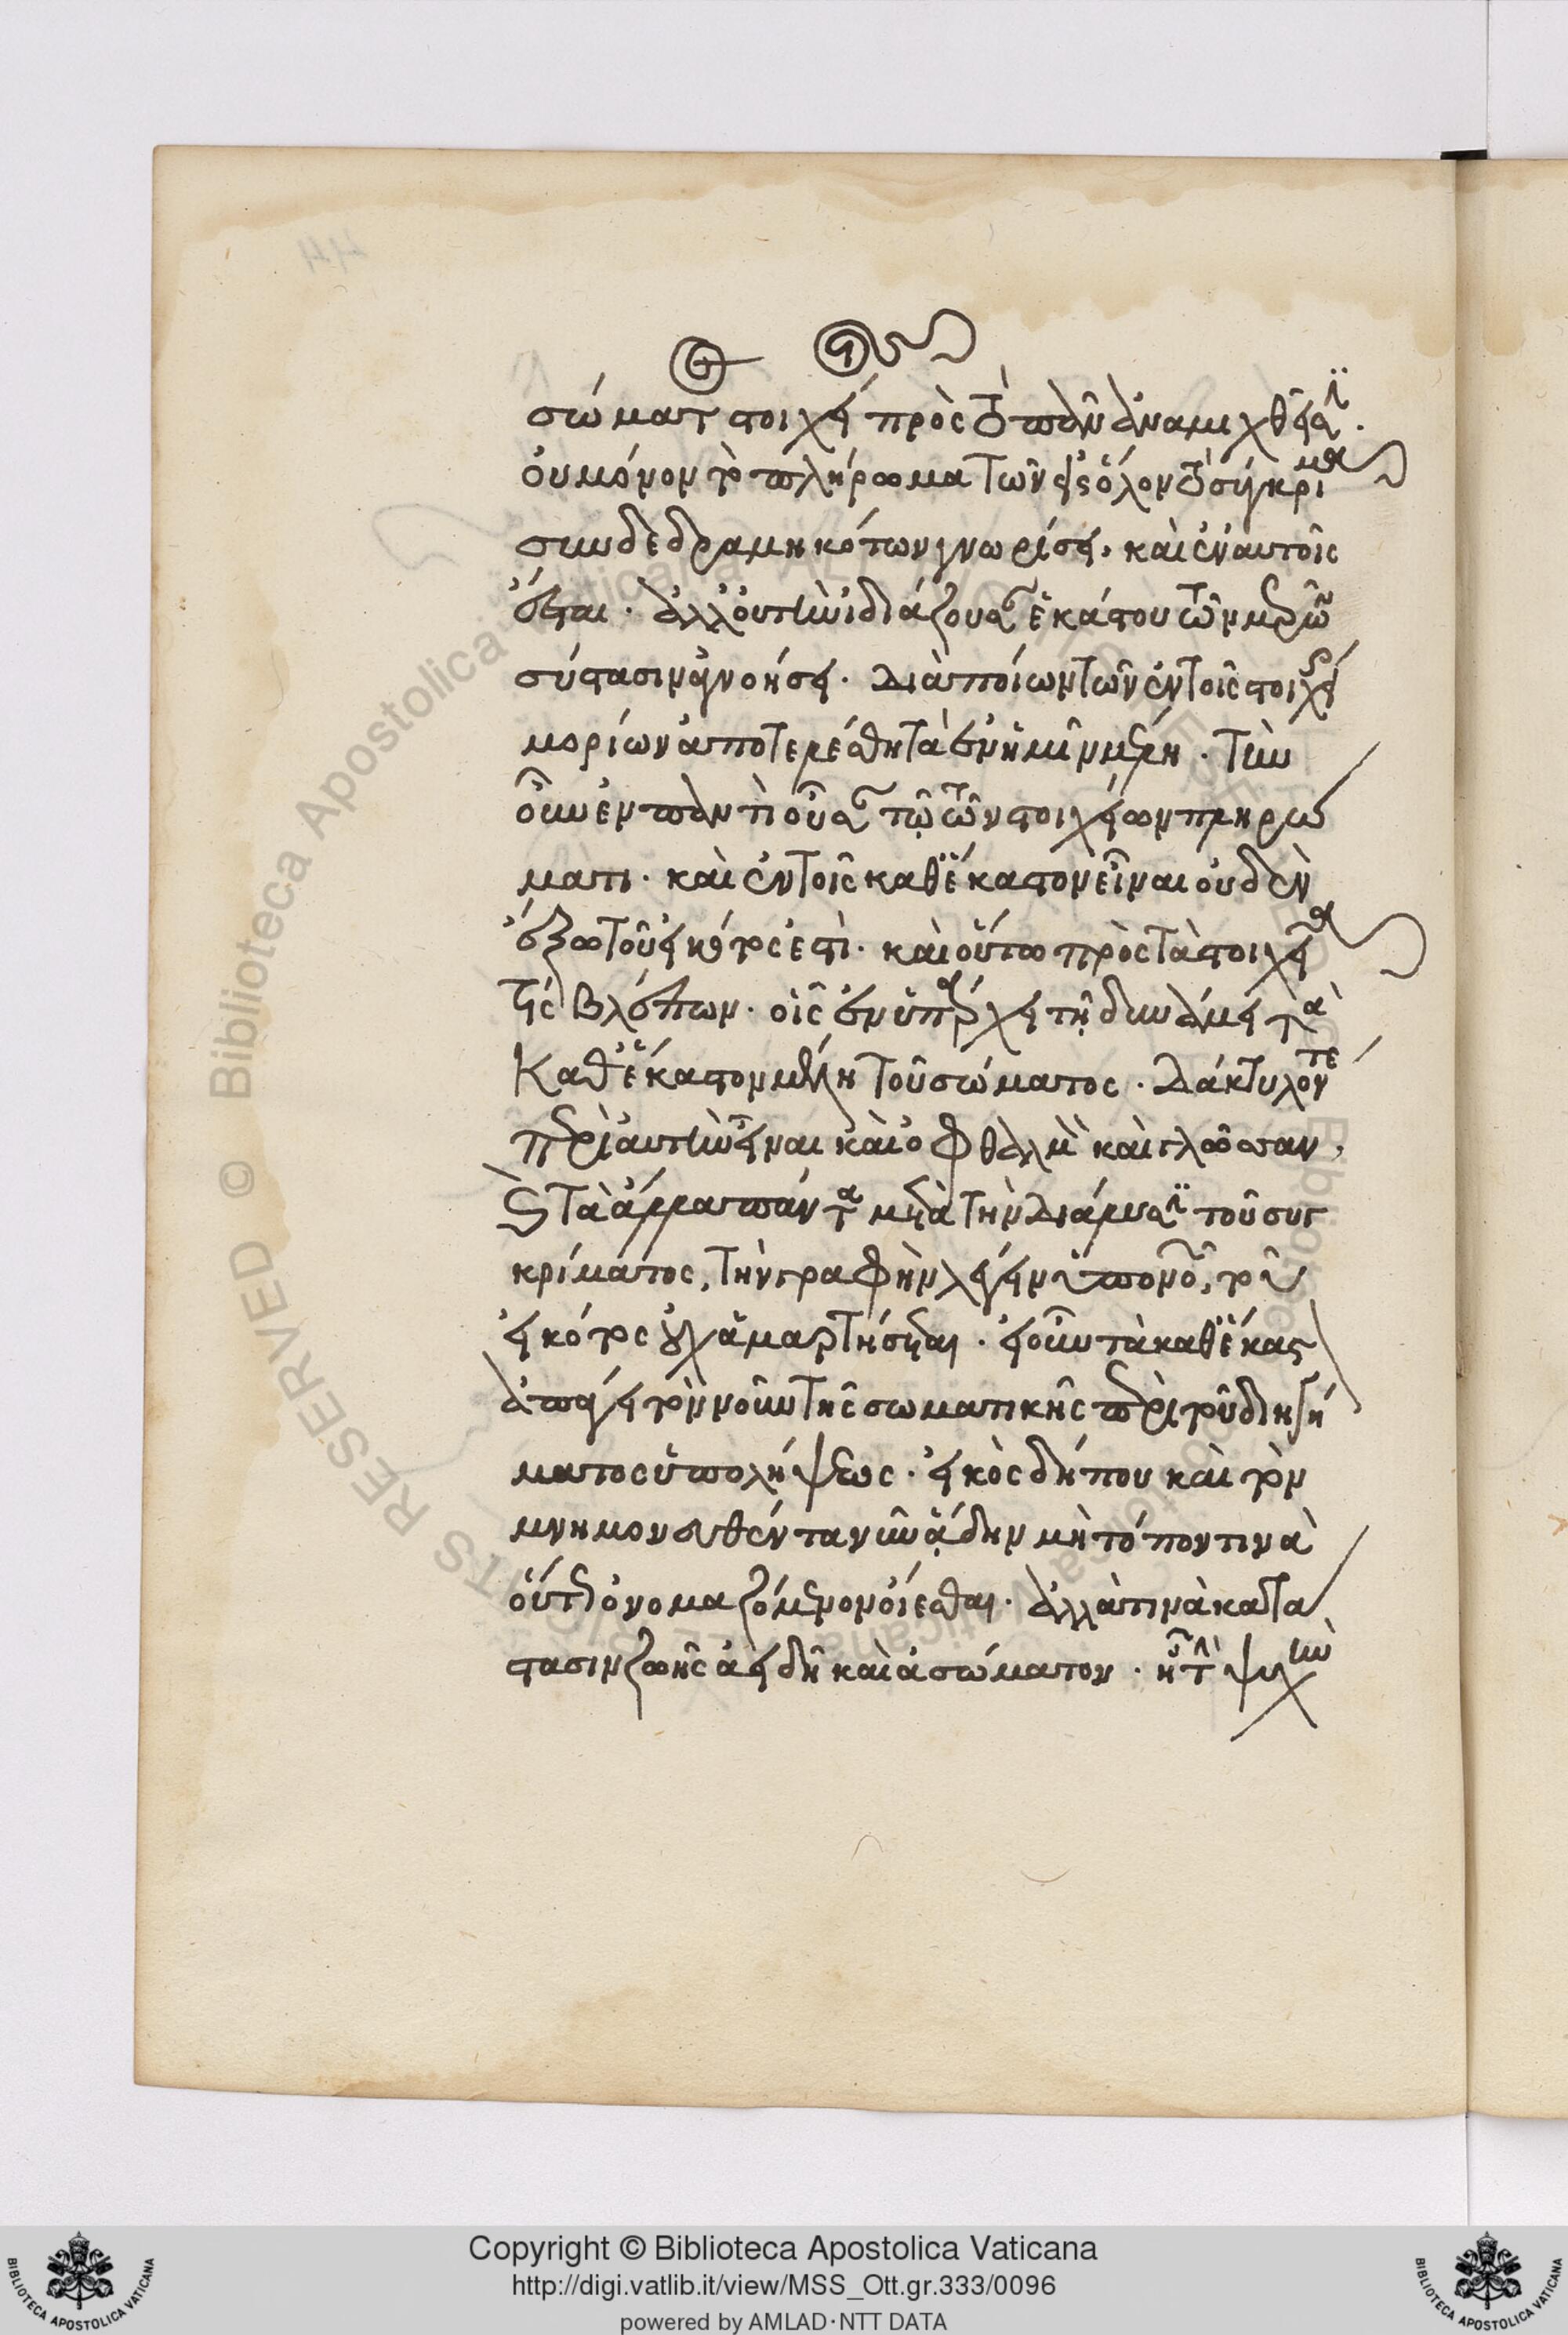 σώματι στοιχεῖα πρὸς τὸ πᾶν ἀναμιχθείση.
οὐ μόνον τὸ πλήρωμα τῶν εἰς ὅλον τὸ σύγκριμα
συνδεδραμηκότων γνωρίσει, καὶ ἐν αὐτοῖς
ἔσται. ἀλλ' οὐ τὴν ἰδιάζουσαν ἑκάστου τῶν μερῶν
σύστασιν ἀγνοήσει. διὰ ποίων τῶν ἐν τοῖς στοιχείοις
μορίων ἀποτελέσθη τὰ ἐν ἡμῖν μέρη. τὴν
οὖν ἐν παντὶ οὖσαν τῷ τῶν στοιχείων πληρώ
ματι. καὶ ἐν τοῖς καθέκαστον εἶναι οὐδὲν
ἔξω τοῦ εἰκότος ἐστί. καὶ οὕτω πρὸς τὰ στοιχεῖα
τὶς βλέπων. οἷς ἐνυπάρχει τῇ δυνάμει τὰ
καθέκαστον μέλη τοῦ σώματος. δάκτυλόν τε
περὶ αὐτὴν εἶναι καὶ ὀφθαλμὸν καὶ γλῶσσαν,
καὶ τὰ ἄλλα πάντα μετὰ τὴν διάλυσιν τοῦ συγ
κρίματος, τὴν γραφὴν λέγειν ὑπονοῶν, τοῦ
εἰκότος οὐχ ἁμαρτήσεται. εἰ οὖν τὰ καθέκαστον
ἀπάγει τὸν νοῦν τῆς σωματικῆς περὶ τοῦ διηγή
ματος ὑπολήψεως. εἰκὸς δήπου καὶ τὸν
μνημονευθέντα νῦν ᾅδην μὴ τόπον τινὰ
οὕτω ὀνομαζόμενον οἴεσθαι. ἀλλά τινα κατά
στασιν ζωῆς ἀειδῆ καὶ ἀσώματον. ᾗ τὴν ψυχὴν
Copyright © Biblioteca Apostolica Vaticana
http://digi.vatlib.it/view/MSS_Ott.gr.333/0096
powered by AMLAD·NTT DATA